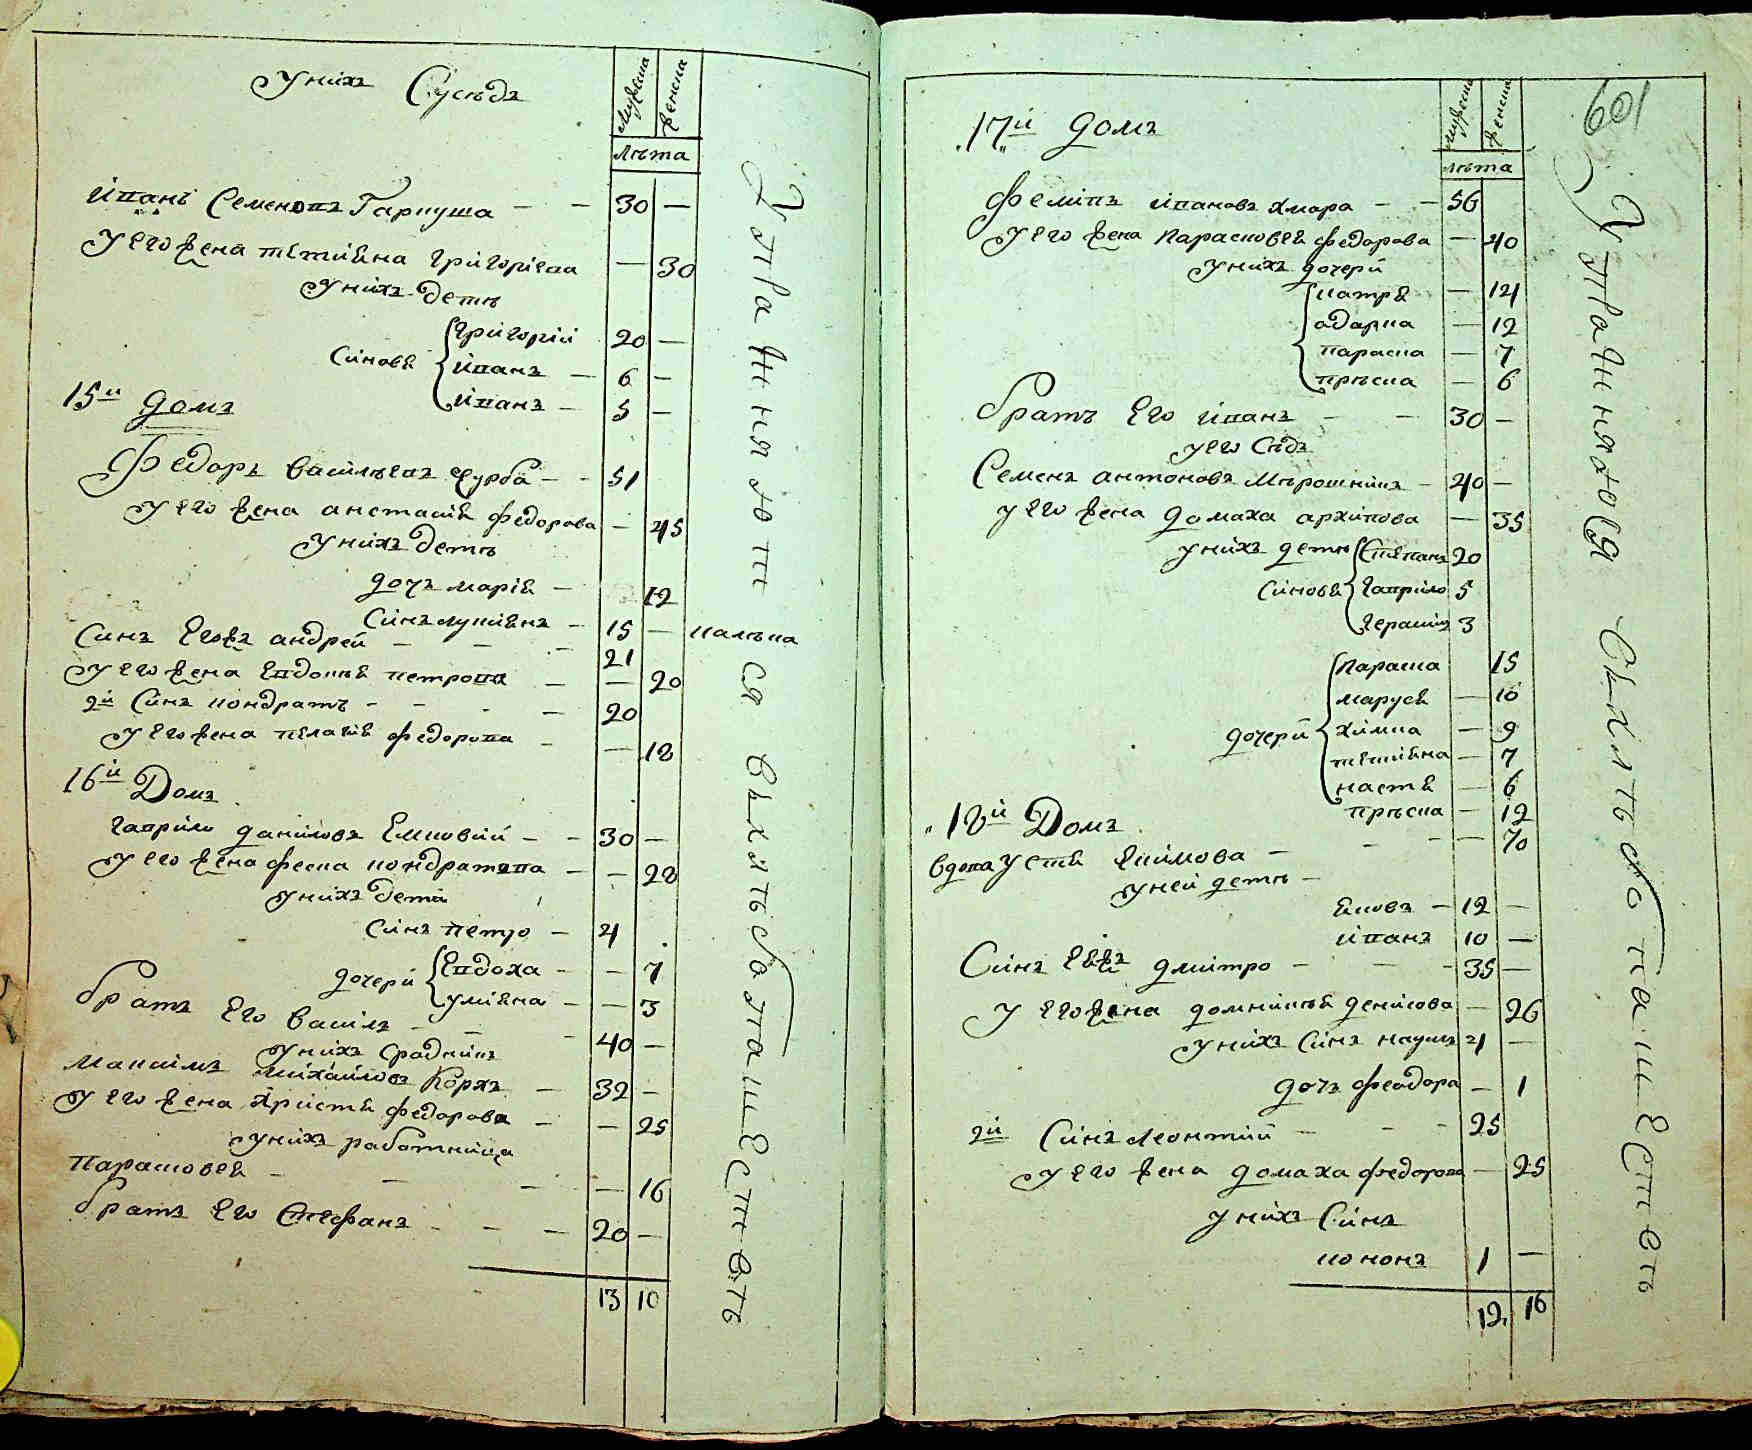 у них Сусѣдъ
мужеска женска
лѣта
иванъ Семеновъ Гаркуша — — 30 —
у его жена татияна григориева — 30
у нихъ детѣ
Синовя григорий 20 —
иванъ — 6 —
иванъ — 5 —
15й домъ
Федоръ василѣевъ журба — — 51
у его жена анстасия федорова — 45
у нихъ детѣ
дочъ мария — 12
Синъ лукиянъ — 15 — калѣка
Синъ Еговъ андрей — — — 21
у его жена Евдокия петрова — — 20
2й Синъ кондратъ — — — 20
у его жена пелагия федорова — — 18
16й Домъ
гаврило даниловъ Емковий — — 30 —
у его жена феска кондратева — — 28
у нихъ дети
Синъ петро — 4
дочери Евдоха — — 7
улияна — — 3
братъ Его василъ — — — 40 —
у нихъ Сродникъ
максимъ михайловъ Коржъ — 32 —
у его жена христя федорова — — 25
у нихъ работница
парасковея — — — — 16
братъ Его Стефанъ — — — 20 —
13 10
У пражняютъ
ся вхлѣбопашестветъ
601
17й домъ
мужеска женска
лѣта
Филипъ ивановъ хмара — — 56
у его жена парасковея федорова — 40
у нихъ дочери
матря — 14
одарка — 12
параска — 7
прѣска — 6
братъ Его иванъ — — 30 —
у его Сѣдъ
Семенъ антоновъ мѣрошникъ — 40 —
у его жена домаха архипова — 35
у нихъ детѣ
Синовя Степанъ 20
гаврило 5
герасимъ 3
дочери параска 15
маруся — 10
химка — 9
татияна — 7
настя — 6
прѣска — 12
18й Домъ
вдова устя якимова — — — — 70
у ней детѣ —
яковъ — 12 —
иванъ 10 —
Синъ Еявъ дмитро — — — 35 —
у его жена домникия денисова — 26
у нихъ Синъ наумъ 4 —
дочъ феодора — 1
2й Синъ леонтий — — — 25
у его жена домаха федорова — 25
у нихъ Синъ
кононъ 1 —
12 16
Упражняются вхлѣбопашестветъ